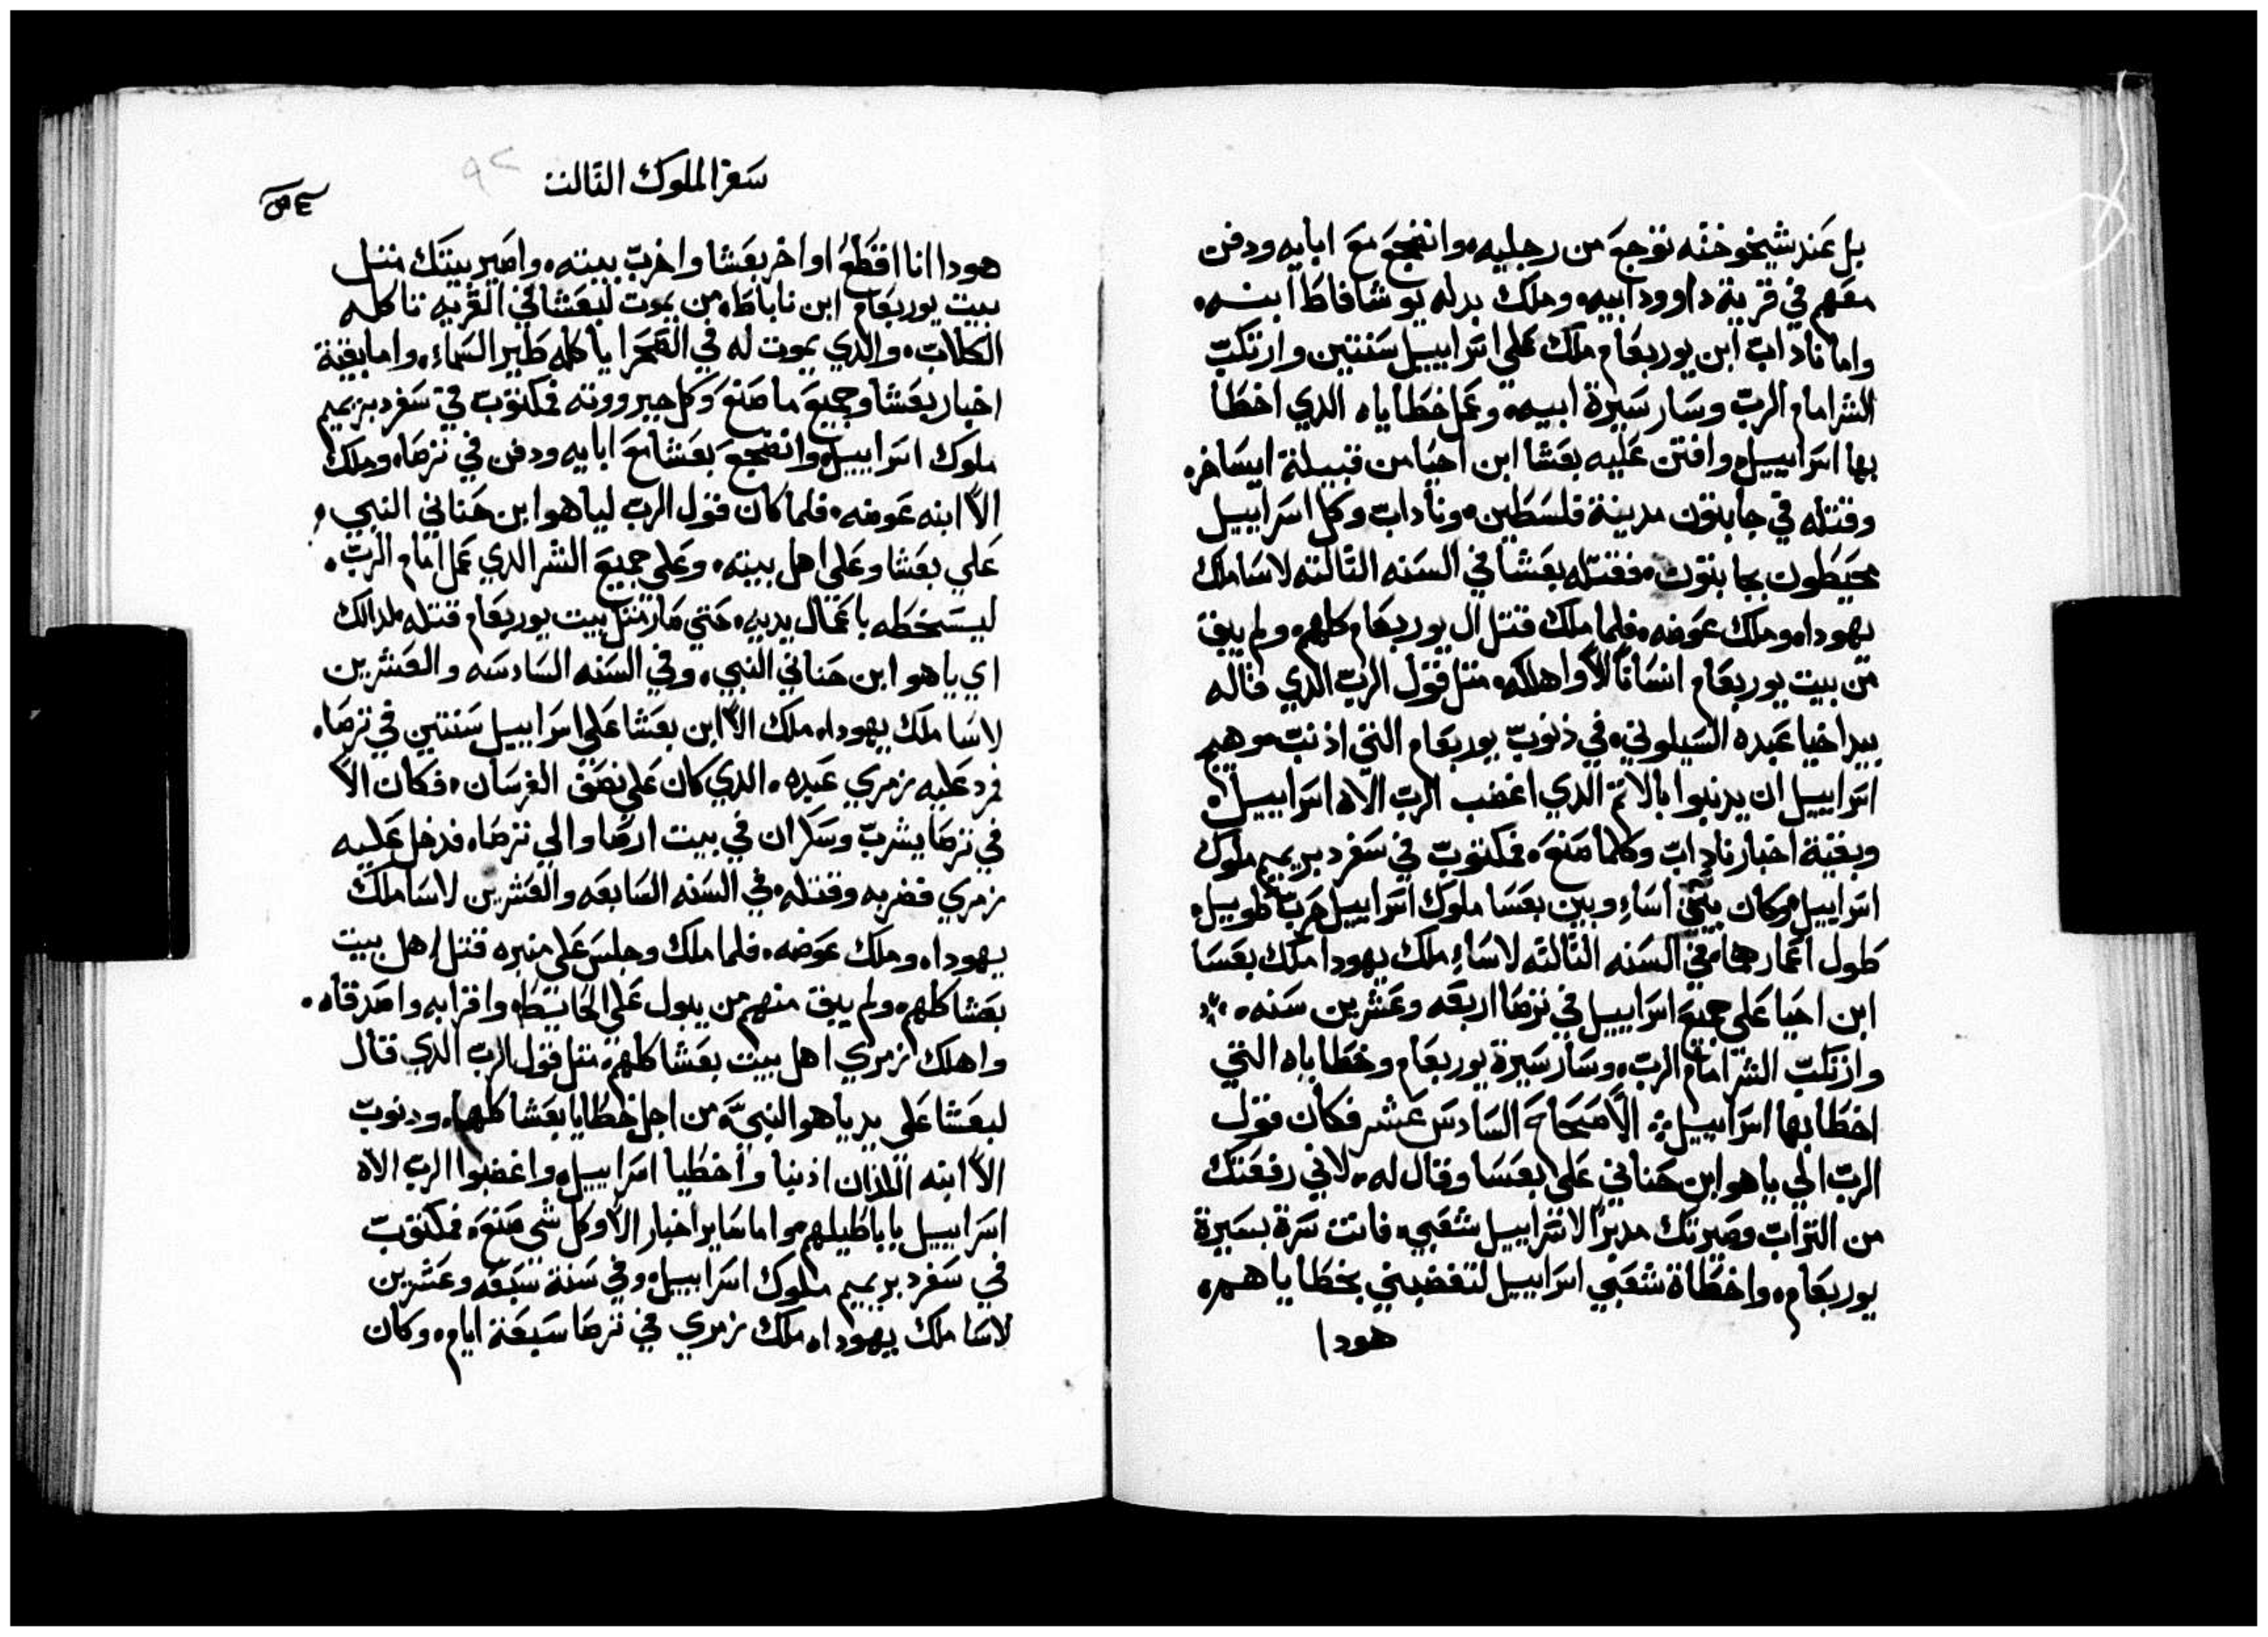 بل عند شيخوخته توجع من رجليه، وانضجع مع ابايه ودفن
معهم في قرية داوود ابيه، وملك بدله يوشافاط ابنه،
واما ناداب ابن يوربعام ملك علي اسراييل سنتين وارتكب
الشر امام الرب وسار سيرة ابيه، وعمل خطاياه الذي اخطا
بها اسراييل، وافتن عليه بعشا ابن احيا من قبيلة ايساخر،
وقتله في جابتون مدينة فلسطين، وناداب وكل اسراييل
محيطون بجابتون، فقتله بعشا في السنه التالته لاسا ملك
يهودا، وملك عوضه، فلما ملك قتل ال يوربعام كلهم، ولم يبق
من بيت يوربعام انسانا الا واهلكه، متل قول الرب الذي قاله
بيد اخيا عبده السيلوني، في ذنوب يوربعام التي اذنب، وهيج
اسراييل ان يدنبوا بالاتم الدي اغضب الرب الاه اسراييل،
وبقية اخبار ناداب وكلما صنع، فمكتوب في سفر دبريميم ملوك
اسراييل، وكان بين اساء وبين بعسا ملوك اسراييل حرب طويل،
طول اعمارهما، في السنه التالته لاساء ملك يهودا ملك بعسا
ابن احيا علي جميع اسراييل في ترصا اربعه وعشرين سنه،
وارتكب الشر امام الرب، وسار سيرة يوربعام وخطاياه التي
اخطا بها اسراييل، الاصحاح السادس عشر فكان قول
الرب الي ياهو ابن حناني علي بعسا وقال له، لاني رفعتك
من التراب وصيرتك مدبرا لاسراييل شعبي، فانت سرة بسيرة
يوربعام، واخطاة شعبي اسراييل لتغضبني بخطاياهم،
هودا
سفر الملوك التالت
٩٢
هودا انا اقطع اواخر بعشا واخرب بيته، واصير بيتك متل
بيت يوربعام ابن ناباط، من يموت لبعشا في القريه تاكله
الكلاب، والدي يموت له في الصحرا ياكله طير السماء، واما بقية
اخبار بعشا وجميع ما صنع وكل جبرووته فمكتوب في سفر دبريميم
ملوك اسراييل، وانضجع بعشا مع ابايه ودفن في ترصا، وملك
الا ابنه عوضه، فلما كان قول الرب لياهو ابن حناني النبي،
علي بعشا وعلي اهل بيته، وعلي جميع الشر الدي عمل امام الرب،
ليسخطه باعمال يديه، حتي صار متل بيت يوربعام قتله لدالك
اي ياهو ابن حناني النبي، وفي السنه السادسه والعشرين
لاسا ملك يهودا، ملك الا ابن بعشا علي اسراييل سنتين في ترصا،
فمرد عليه زمري عبده، الدي كان علي نصف الفرسان، فكان الا
في ترصا يشرب وسكران في بيت ارصا والي ترصا، فدخل عليه
زمري فضربه وقتله، في السنه السابعه والعشرين لاسا ملك
يهودا، وملك عوضه، فلما ملك وجلس علي منبره قتل اهل بيت
بعشا كلهم، ولم يبق منهم من يبول علي الحايط، واقرابه واصدقاه،
واهلك زمري اهل بيت بعشا كلهم، متل قول الرب الدي قال
لبعشا علي يد ياهو النبي، من اجل خطايا بعشا كلها، ودنوب
الا ابنه اللذان اذنبا واخطيا اسراييل، واغضبوا الرب الاه
اسراييل باباطيلهم، واما ساير اخبار الا وكل شي صنع، فمكتوب
في سفر دبريميم ملوك اسراييل، وفي سنة سبعه وعشرين
لاسا ملك يهودا، ملك زمري في ترصا سبعة ايام، وكان